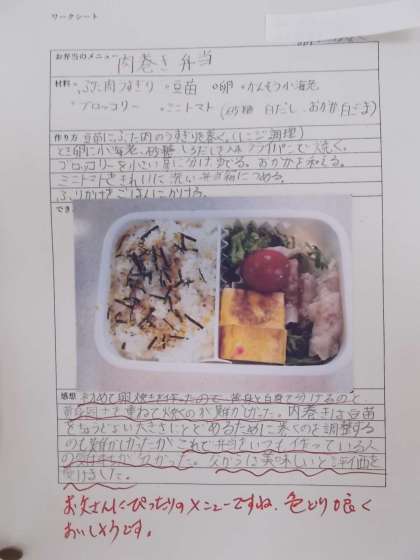 ワークシート
お弁当のメニュー 肉巻き弁当
材料・ぶた肉うすぎり ・豆苗 ・卵 ・かんそうか海老
・ブロッコリー ・ミニトマト (砂糖 白だし おかか 白ごま)
作り方 豆苗にぶた肉のうすぎりを巻く。(レンジ調理)
とき卵にか海老、砂糖、しろだしを入れフライパンで焼く。
ブロッコリーを小さい房に分け ゆでる。おかかを和える。
ミニトマトをきれいに洗い弁当箱につめる。
ふりかけをごはんにかける。
でき
感想 初めて卵焼きを作ったので 黄身と白身で分けるのと
を重ねて焼くのが難しかった。肉巻きは豆苗
をちょうどよい大きさにとどめるために巻くのを調整する
のも難しかったがこれで弁当をいつも作っている人
の気持ちが分かった。父からは美味しいと評価を
受けました。
お父さんにぴったりのメニューですね。色どり良く
おいしそうです。